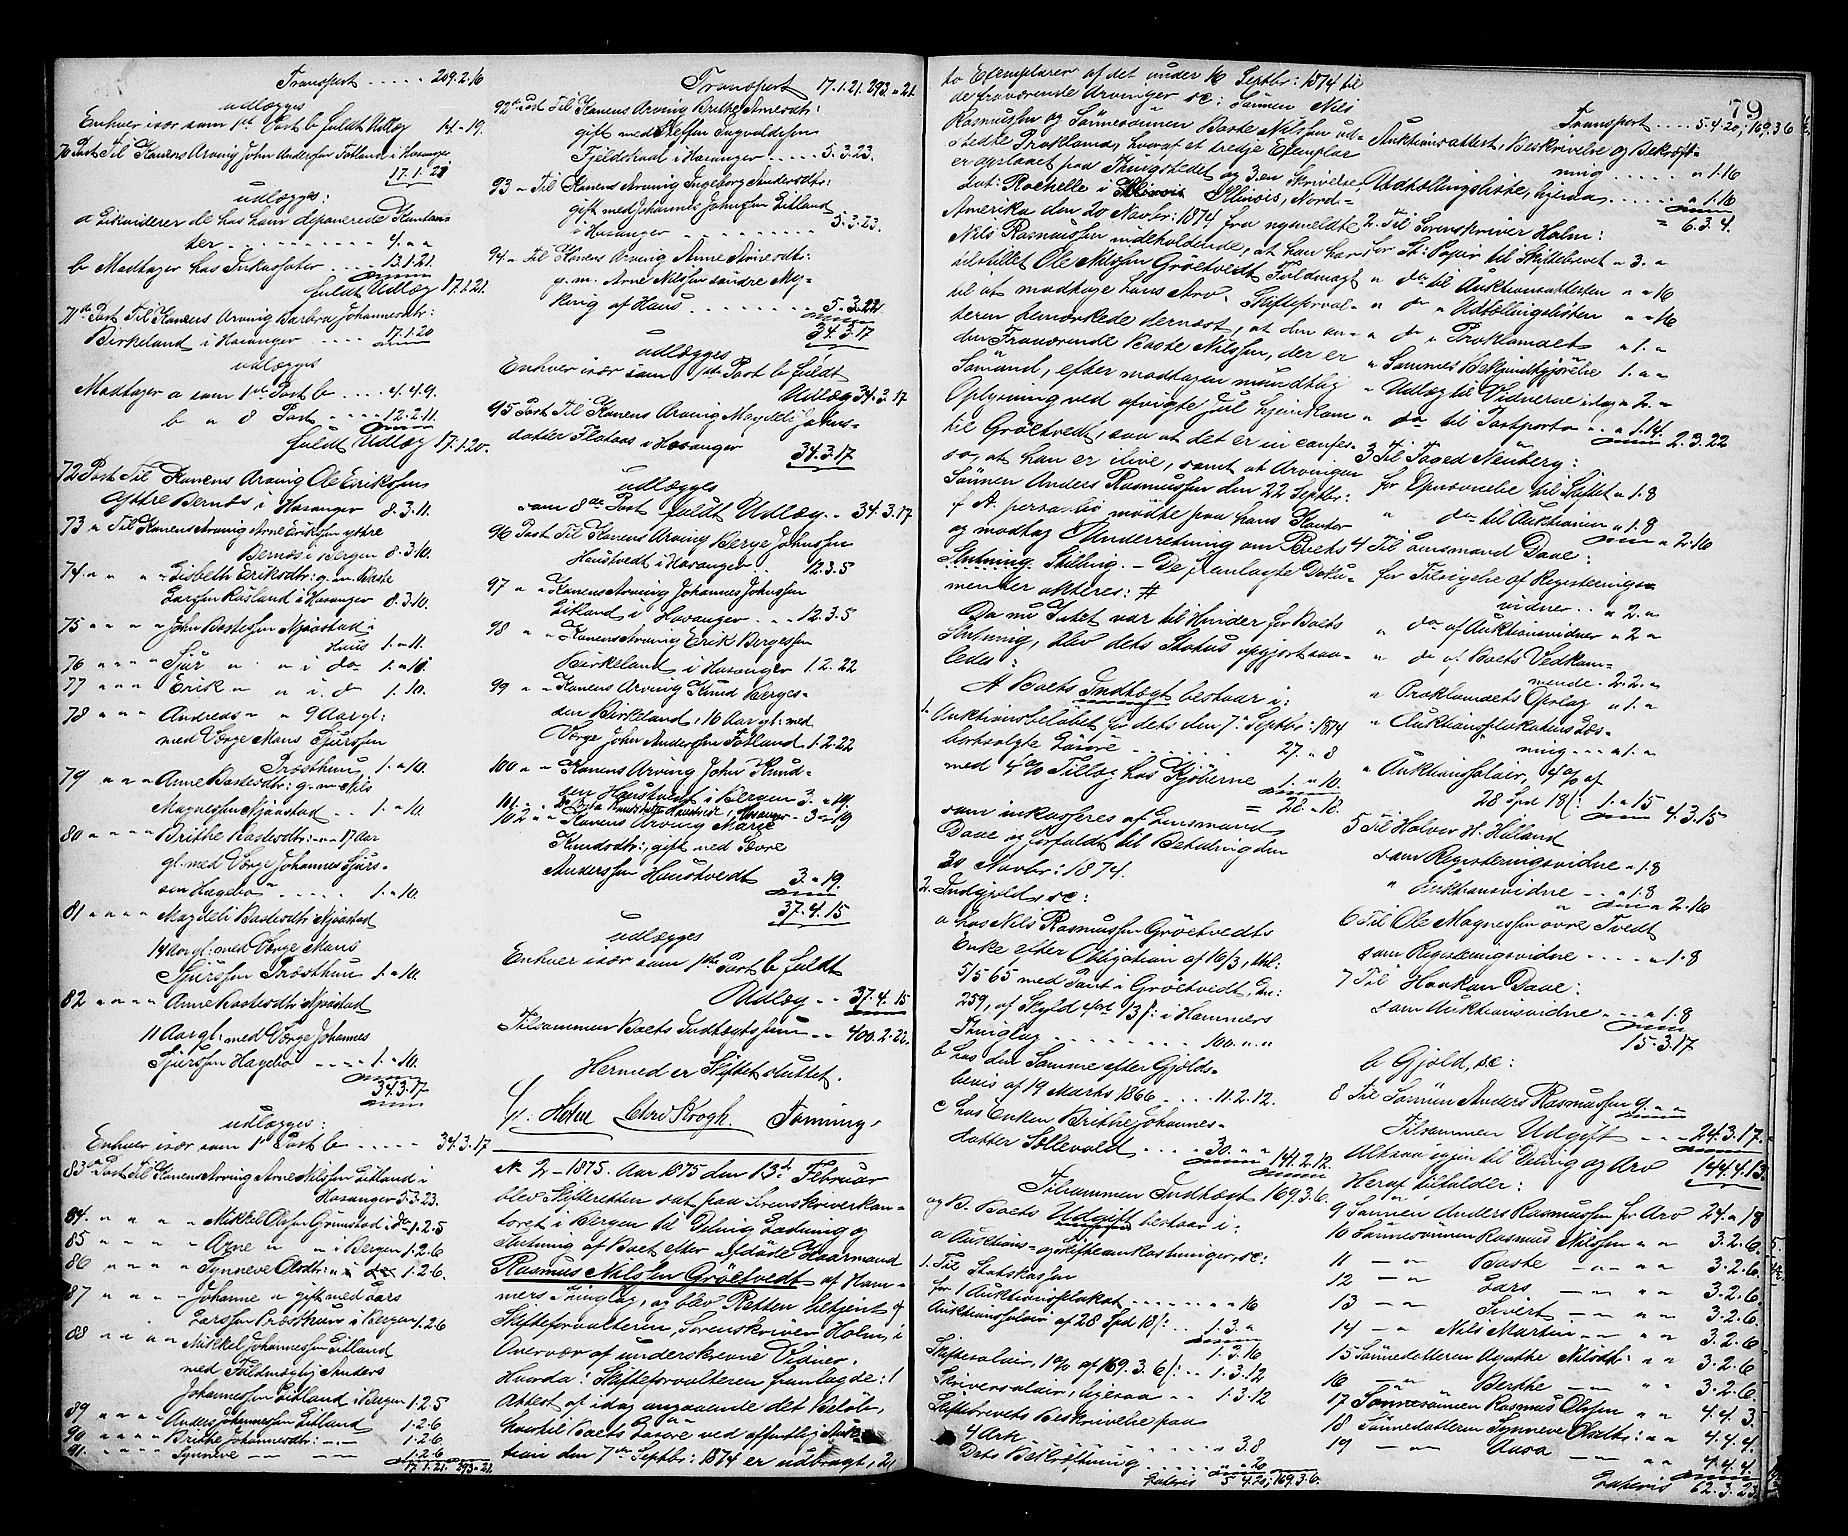 Transport ..... 209.2.16
udlægges
Enhver især som 1ste Post b fuldt Udlæg 14 - 19.
70 Post Til Konens Arving John Anderssen Totland i Hosanger
17.1.21
udlægges:
a Likviderer de hos ham deponerede Kontan-
ter .......... 4. " "
b Modtager hos Inkassator .... 13.1.21.
fuldt Udlæg 17.1.21.
71de Post Til Konens Arving Barbra Johannesdtr:
Birkeland i Hosanger ..... 17.1.20
udlægges
Modtager a som 1ste Post b .... 4.4.9.
b " 8 Post .... 12.2.11.
fuldt Udlæg 17.1.20.
72 Post Til Konens Arving Ole Erikssen
Yttre Bernæs i Hosanger 8.3.11.
73 " Til Konens Arving Arne Erikssen yttre
Bernæs i Bergen 8.3.10.
74 " " " Lisbeth Eriksdtr: g. m. Baste
Larssen Røsland i Hosanger 8.3.10.
75 " " " " John Bastessen Mjøstad i
Haus 1. " 11.
76 " " " " Sjur " " " i do 1. " 11
77 " " " Erik " " i do 1. " 10.
78 " " " Andreas " " 9 Aar gl:
med Værge Mons Sjurssen
Træsthun 1. " 10.
79 " " " Anne Bastesdtr: g. m. Nils
Magnessen Mjøstad .. 1. " 10.
80 " " " " Brithe Bastesdtr: " " 17 Aar
gl: med Værge Johannes Sjurs-
sen Hagebø ..... 1. " 10.
81 " " " " Magdeli Bastesdtr: Mjøstad
14 Aar gl: med Værge Mons
Sjurssen Træsthun 1. " 10.
82 " " " " Anne Bastesdtr: Mjøstad
11 Aar gl: med Værge Johannes
Sjurssen Hagebø .... 1. " 10.
34.3.17
udlægges:
Enhver især som 1ste Post b ..... 34.3.17
83de Post Til Konens Arving Arne Nilssen Eitland i
Hosanger 5.3.23.
84. " " " " Mikkel Olssen Grimstad i do 1.2.5
85 " " " " Arne " " i Bergen 1.2.6
86 " " " " Synneve Olsdtr: " i do 1.2.6.
87 " " " " Johanne " gift med Lars
Larssen Træsthun i Bergen 1.2.6
88 " " " " Mikkel Johannessen Eitland
med Fuldmægtig Anders
Johannessen Eitland i Bergen 1.2.5
89 " " " " Anders Johannessen Eitland 1.2.6
90 " " " " Brithe Johannesdtr: — " — 1.2.6
91. " " " " Synneve — " — — " — 1.2.6
17.1.21. 293. " 21.
Transport 17.1.21. 293 " 21.
92de Post Til Konens Arving Brithe Arnesdtr:
gift med Steffen Ingvaldssen
Fjeldstad i Hosanger ..... 5.3.23.
93 " Til Konens Arving Ingeborg Andersdtr:
gift med Johannes Johnssen Eitland
i Hosanger ......... 5.3.23.
94 " Til Konens Arving Anne Arnesdtr:
g. m. Arne Nilssen søndre My-
king af Haus ........ 5.3.22.
34.3.17
udlægges
Enhver især som 1ste Post b fuldt
Udlæg 34.3.17
95 Post Til Konens Arving Magdeli Johns-
datter Flataas i Hosanger 34.3.17
udlægges
som 8de Post fuldt Udlæg .. 34.3.17
96 Post Til Konens Arving Berge Johnssen
Haustvedt i Hosanger .. 12.3.5
97 " " Konens Arving Johannes Johnssen
Eikland i Hosanger ... 12.3.5
98 " " Konens Arving Erik Bergessen
Birkeland i Hosanger 1.2.22
99 " " Konens Arving Knud Berges-
sen Birkeland, 16 Aar gl: med
Værge John Anderssen Totland 1.2.22
100 " " Konens Arving John Knud-
sen Haustvedt i Bergen 3. " 19.
101. " " do Brita Knudsdatter Haustvedt, Hosanger - 3 " 19
102 " " Konens Arving Marge
Knudsdtr:, gift med Sevre
Anderssen Haustvedt 3. " 19.
37.4.15
udlægges
Enhver især som 1ste Post b fuldt
Udlæg .. 37.4.15
Tilsammen Boets Indtægtssum .. 400.2.22.
Hermed er Skiftet sluttet.
Holm Chr. Krogh. Tønning.
No 2 - 1875. Aar 1875 den 13de Februar
blev Skifteretten sat paa Sorenskriverkon-
toret i Bergen til Deling, Lodning og
Slutning af Boet efter afdøde Gaardmand
Rasmus Nilssen Gröetvedt af Ham-
mers Thinglag, og blev Retten betjent af
Skifteforvalteren, Sorenskriver Holm, i
Overvær af underskrevne Vidner.
Hvorda: Skifteforvalteren fremlagde: 1
Attest af idag angaaende det Beløb,
hvortil Boets Løsøre ved offentlig Auk-
tion den 7de Septbr: 1874 er udbragt, 2,
to Exemplarer af det under 16 Septbr: 1874 til
de fraværende Arvinger sc: Sønnen Nils
Rasmussen og Sønnesønnen Baste Nilssen ud-
stedte Proklama, hvoraf et tredje Exemplar
er opslaaet paa Thingstedet og 3. en Skrivelse
dat: Rochelle i Illinois, Nord-
Amerika den 20 Novbr: 1874 fra nysmeldte
Nils Rasmussen indeholdende, at han har
udstillet Ole Nilssen Gröetvedt Fuldmagt
til at modtage hans Arv. Skifteforval-
teren bemærkede dernæst, at den an-
den Fraværende Baste Nilssen, der er
Sømand, efter modtagen mundtlig
Oplysning ved afvigte Jul hjemkom
til Gröetvedt, saa at det er in confes-
so, at han er ilive, samt at Arvingen
Sønnen Anders Rasmussen den 22 Septbr:
f. A. personlig mødte paa hans Kontor
og modtog Underretning om Boets
Slutning. Skiftning. - De fremlagte Doku-
menter akteres: #
Da nu Intet var til Hinder for Boets
Slutning, blev dets Status opgjort saa-
ledes:
A Boets Indtægt bestaar i:
1. Auktionsbeløbet for dets den 7de Septbr: 1874
bortsolgte Løsøre ....... 27. " 8
med 4 % Tillæg hos Kjøberne 1. " 10.
= 28. " 18.
som inkasseres af Lensmand
Daae og forfaldt til Betaling den
30 Novbr: 1874.
2. Indgjeld, sc:
a hos Nils Rasmussen Gröetvedts
Enke efter Obligation af 16/3, thl:
5/5 65 med Pant i Gröetvedt, Ln:
259, af Skyld 4ort 13 ß: i Hammers
Thinglag ........ 100. " "
b hos den Samme efter Gjelds-
bevis af 19 Marts 1866 .... 11.2.12.
c hos Enken Brithe Johannes-
datter Sællevold .... 30. " " 141.2.12.
Tilsammen Indtægt 169.3.6.
og B. Boets Udgift bestaar i:
a Auktions- og Skifteomkostninger, sc:
1. Til Statskassen
for 1 Auktionsplakat ...... " " 16
Auktionssalair af 28 Spd 18 ß: .. 1.3. "
1.3.16
Skiftesalair, 1 % af 169.3.6 ß: .. 1.3.12
Skriversalair, ligesaa .. 1.3.12
Skiftebrevets Beskrivelse paa
4 Ark ........ " 3.8
Dets Bekræftning ..... " " 20
Lateris 5.4.20; 169.3.6.
79
Transport .... 5.4.20; 169.3.6
Auktionsattest, Beskrivelse og Bekræft-
ning ...... " 1.16
Udtællingsliste, ligesaa ..... " 1.16
= 6.3.4.
2. Til Sorenskriver Holm:
for St: Papir til Skiftebrevet " 3. "
" do til Auktionsattesten " " 16
" do " Udtællingslisten " " 16
" do " Proklamaet " 1. "
" Sammes Bekjendtgjørelse 1. " "
" Udlæg til Vidnerne idag " 2. "
" do til Postporto .. " 1.14. 2.3.22
3 Til Foged Neuberg:
for Opnævnelse til Skiftet " 1.8
" do til Auktionen " 1.8
" 2.16
4 Til Lensmand Daae:
for Tilsigelse af Registrerings-
vidner .. " 2. "
" do af Auktionsvidner " 2 "
" do af Boets Vedkom-
mende . 2.2. "
" Proklamaets Opslag " 1. "
" Auktionsplakatens Læs-
ning ... " 1. "
" Auktionssalair, 4 % af
28 Spd 18 ß: 1. " 15 4.3.15
5 Til Halvor H. Hilland
som Registreringsvidne " 1.8
" Auktionsvidne .. " 1.8
" 2.16
6 Til Ole Magnessen øvre Tvedt
som Registreringsvidne .... " 1.8
7 Til Haakon Daae:
som Auktionsvidne ... " 1.8
15.3.17
b Gjeld, sc:
8 Til Sønnen Anders Rasmussen 9 " "
Tilsammen Udgift ... 24.3.17.
Altsaa igjen til Deling og Arv 144.4.13.
Heraf tilfalder:
9 Sønnen Anders Rasmussen for Arv 24. " 18
10 Sønnesønnen Rasmus Nilssen " " 3.2.6.
11 — " — Baste — " " " 3.2.6.
12 — " — Lars — " " 3.2.6.
13 — " — Sivert — " " 3.2.6.
14 — " — Nils Martin — " " 3.2.6.
15 Sønnedatteren Agathe Nilsdtr: " " 3.2.6
16 — " — Berthe — " " 3.2.6.
17 Sønnesønnen Rasmus Olssen " " 4.4.3.
18 Sønnedatteren Synneve Olsdtr: " " 4.4.4.
19 — " — Anna — " " 4.4.4.
Lateris 62.3.23.